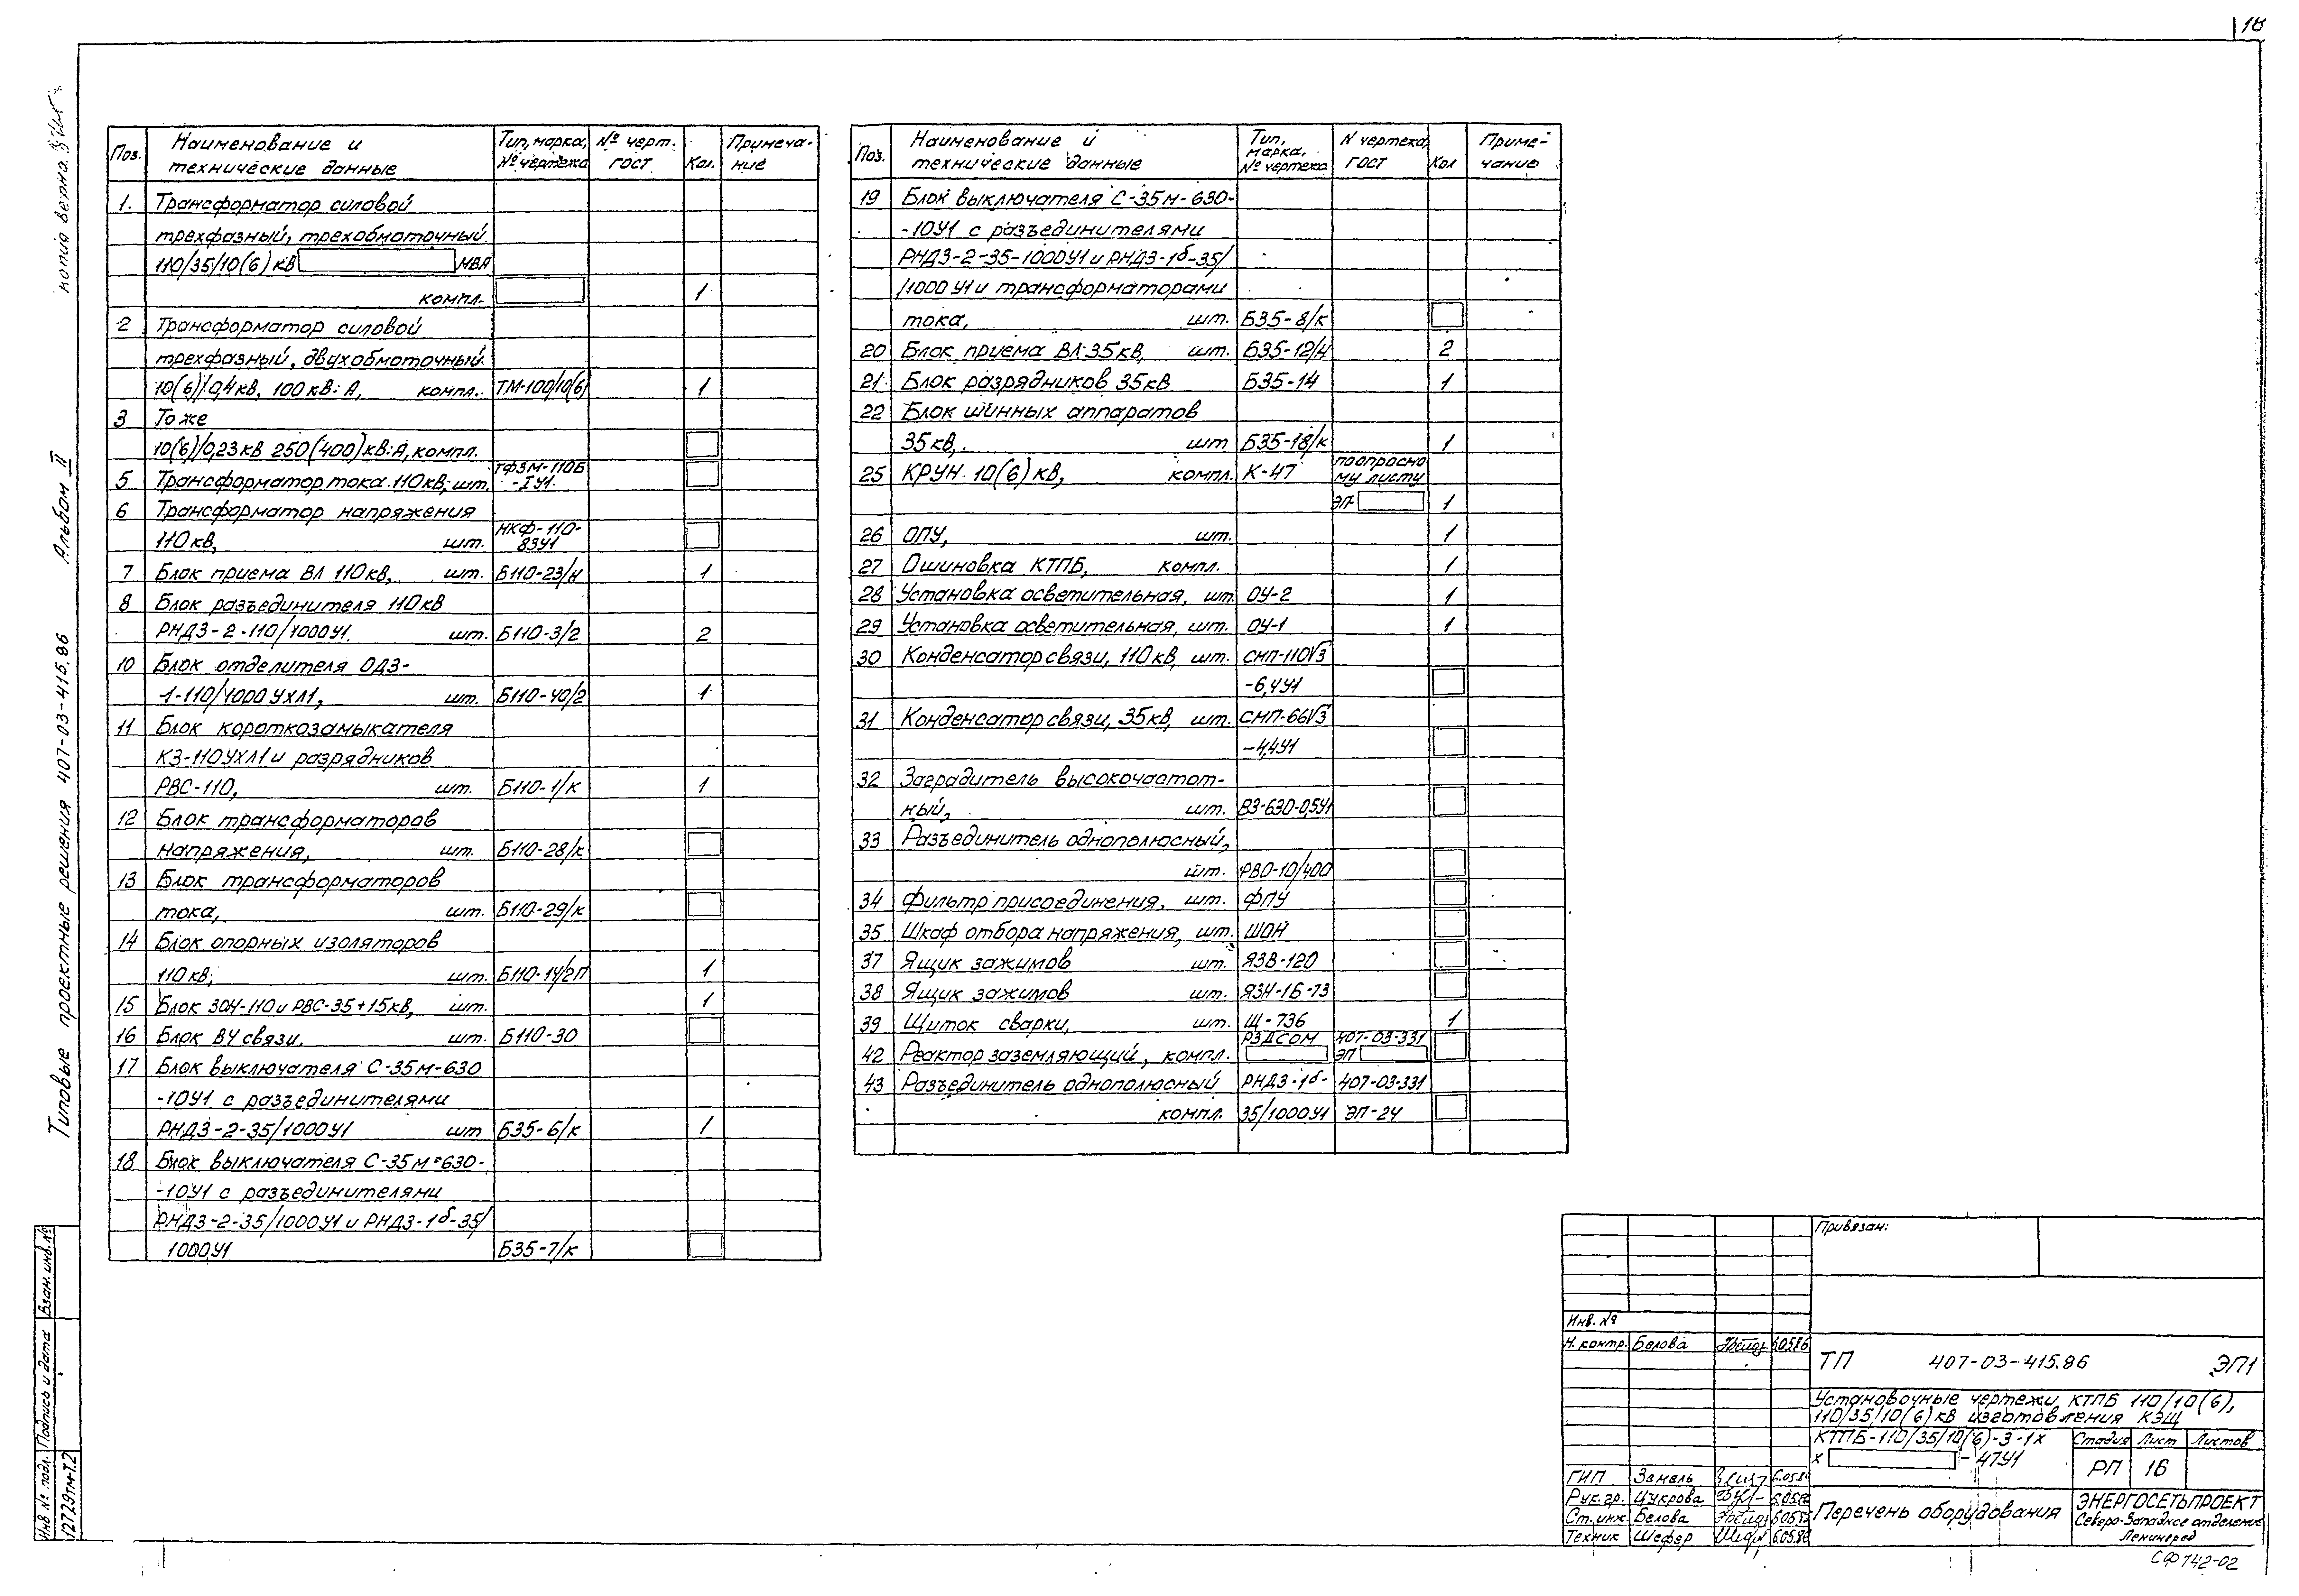 18
Поз.
Наименование и
технические данные
Тип, марка,
№ чертежа
№ черт.
ГОСТ
Кол.
Примеча-
ние
1. Трансформатор силовой
трехфазный, трехобмоточный
110/35/10(6) кВ МВА
компл. 1
2 Трансформатор силовой
трехфазный, двухобмоточный
10(6)/0,4кВ, 100 кВ·А, компл. ТМ-100/10(6) 1
3 То же
10(6)/0,23кВ 250(400)кВ·А, компл.
5 Трансформатор тока 110кВ, шт. ТФЗМ-110Б
-IУ1
6 Трансформатор напряжения
110 кВ, шт. НКФ-110-
83У1
7 Блок приема ВЛ 110кВ, шт. Б110-23/Н 1
8 Блок разъединителя 110 кВ
РНДЗ-2-110/1000У1 шт. Б110-3/2 2
10 Блок отделителя ОДЗ-
-1-110/1000 УХЛ1, шт. Б110-40/2 1
11 Блок короткозамыкателя
КЗ-110УХЛ1 и разрядников
РВС-110, шт. Б110-1/К 1
12 Блок трансформаторов
напряжения, шт. Б110-28/К
13 Блок трансформаторов
тока, шт. Б110-29/К
14 Блок опорных изоляторов
110 кВ, шт. Б110-14/2П 1
15 Блок ЗОН-110 и РВС-35+15кВ, шт. 1
16 Блок ВЧ связи, шт. Б110-30
17 Блок выключателя С-35М-630
-10У1 с разъединителями
РНДЗ-2-35/1000У1 шт Б35-6/К 1
18 Блок выключателя С-35М-630-
-10У1 с разъединителями
РНДЗ-2-35/1000У1 и РНДЗ-1б-35/
1000У1 Б35-7/К
Поз.
Наименование и
технические данные
Тип,
марка,
№ чертежа
N чертежа,
ГОСТ
Кол
Приме-
чание
19 Блок выключателя С-35М-630-
-10У1 с разъединителями
РНДЗ-2-35-1000У1 и РНДЗ-1б-35/
/1000 У1 и трансформаторами
тока, шт. Б35-8/К
20 Блок приема ВЛ 35кВ, шт. Б35-12/Н 2
21 Блок разрядников 35кВ Б35-14 1
22 Блок шинных аппаратов
35 кВ, шт Б35-18/К 1
25 КРУН 10(6) кВ, компл. К-47 по опросно
му листу
ЭП- 1
26 ОПУ, шт. 1
27 Ошиновка КТПБ, компл. 1
28 Установка осветительная, шт. ОУ-2 1
29 Установка осветительная, шт. ОУ-1 1
30 Конденсатор связи, 110 кВ, шт. СМП-110√3
-6,4У1
31 Конденсатор связи, 35кВ, шт. СМП-66√3
-4,4У1
32 Заградитель высокочастот-
ный, шт. ВЗ-630-0,5У1
33 Разъединитель однополюсный,
шт. РВО-10/400
34 Фильтр присоединения, шт. ФПУ
35 Шкаф отбора напряжения, шт. ШОН
37 Ящик зажимов шт. ЯЗВ-120
38 Ящик зажимов шт. ЯЗН-1Б-73
39 Щиток сварки, шт. Щ-736 1
42 Реактор заземляющий, компл. РЗДСОМ 407-03-331
ЭП
43 Разъединитель однополюсный РНДЗ-1б- 407-03-331
компл. 35/1000У1 ЭП-24
копия верна.
Альбом II
Типовые проектные решения 407-03-415.86
Взам. инв. №
Подпись и дата
Инв № подл.
12729тм-т.2
Привязан:
Инв. №
Н. контр. Белова 6.05.86
ТП 407-03-415.86 ЭП1
Установочные чертежи КТПБ 110/10(6),
110/35/10(6) кВ изготовления КЭЩ
КТПБ-110/35/10(6)-3-1х
х - 47У1
Стадия Лист Листов
РП 16
ГИП Земель
Рук. гр. Цукрова
Ст. инж Белова
Техник Шефер 6.05.86
Перечень оборудования
ЭНЕРГОСЕТЬПРОЕКТ
Северо-Западное отделение
Ленинград
СФ742-02